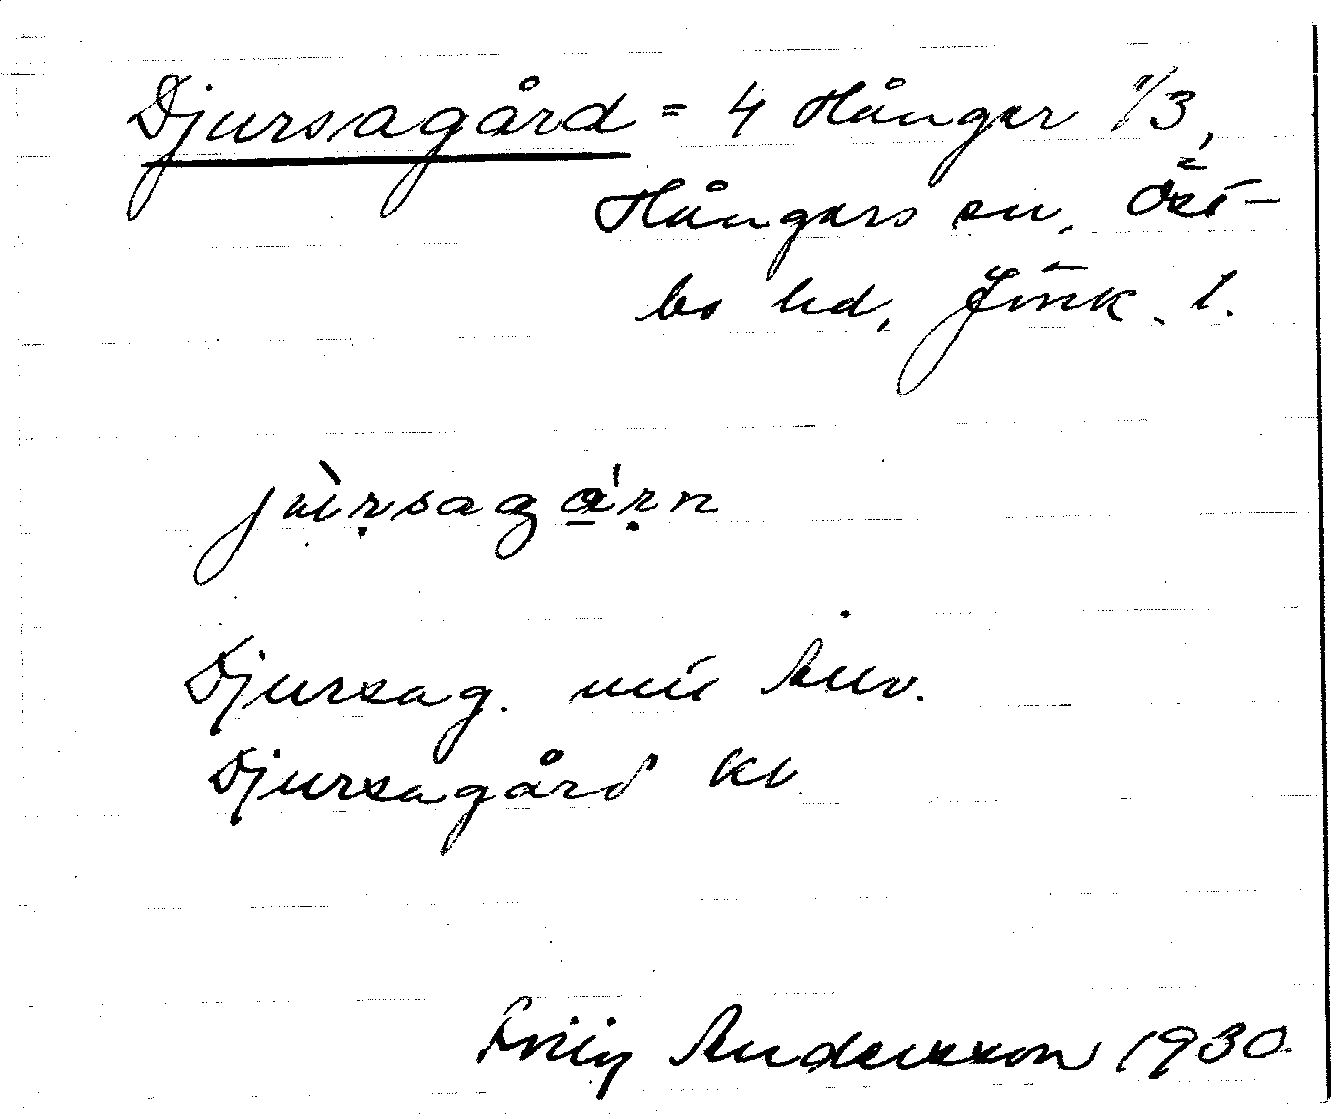 Djursagård = 4 Hånger 1/3,
Hångers sn, Öst-
bo hd, Jönk. l.
jùrsagárn
Djursag. utt Anv.
Djursagård kv
Andersson 1930.